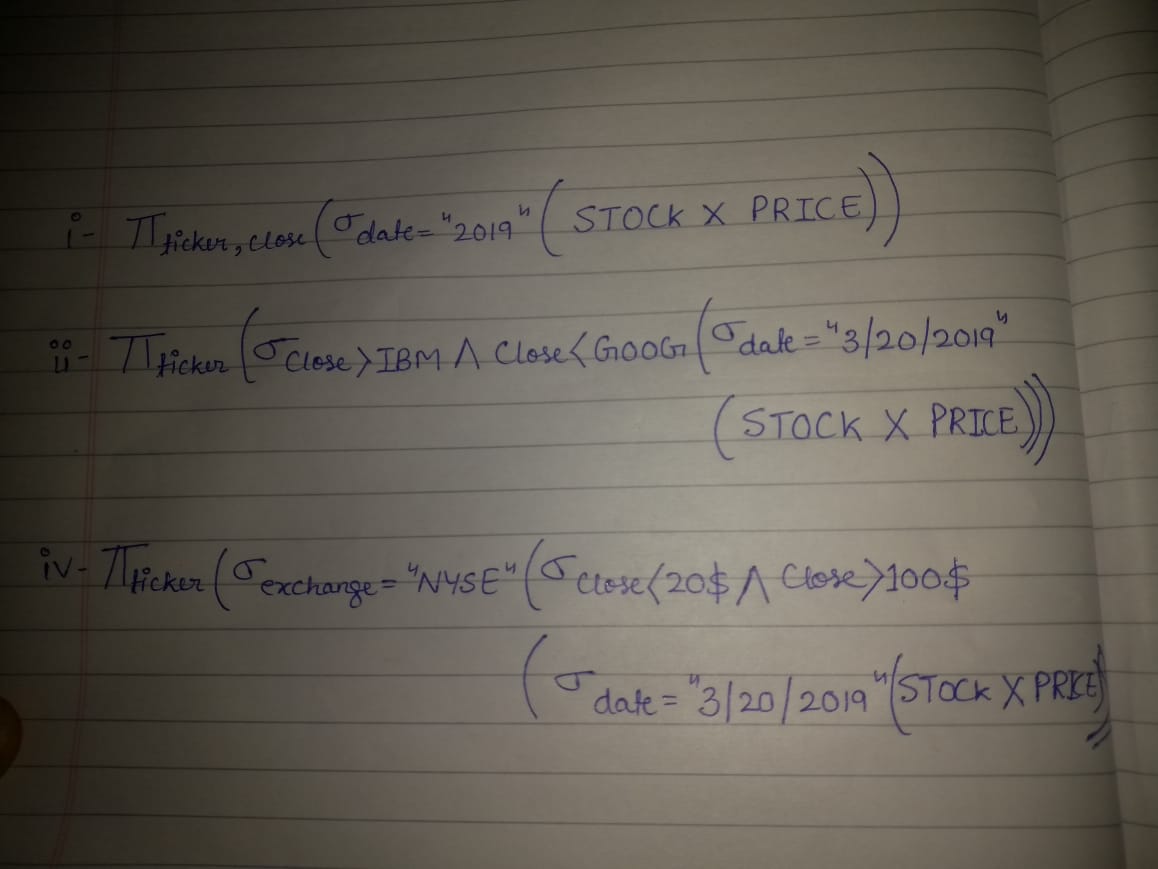 i- π ticker, close (σ date = "2019" (STOCK X PRICE))
ii- π ticker (σ Close > IBM ∧ Close < GOOG (σ date = "3/20/2019"
(STOCK X PRICE)))
iv- π ticker (σ exchange = "NYSE" (σ Close < 20$ ∧ Close > 100$
(σ date = "3/20/2019" (STOCK X PRICE))